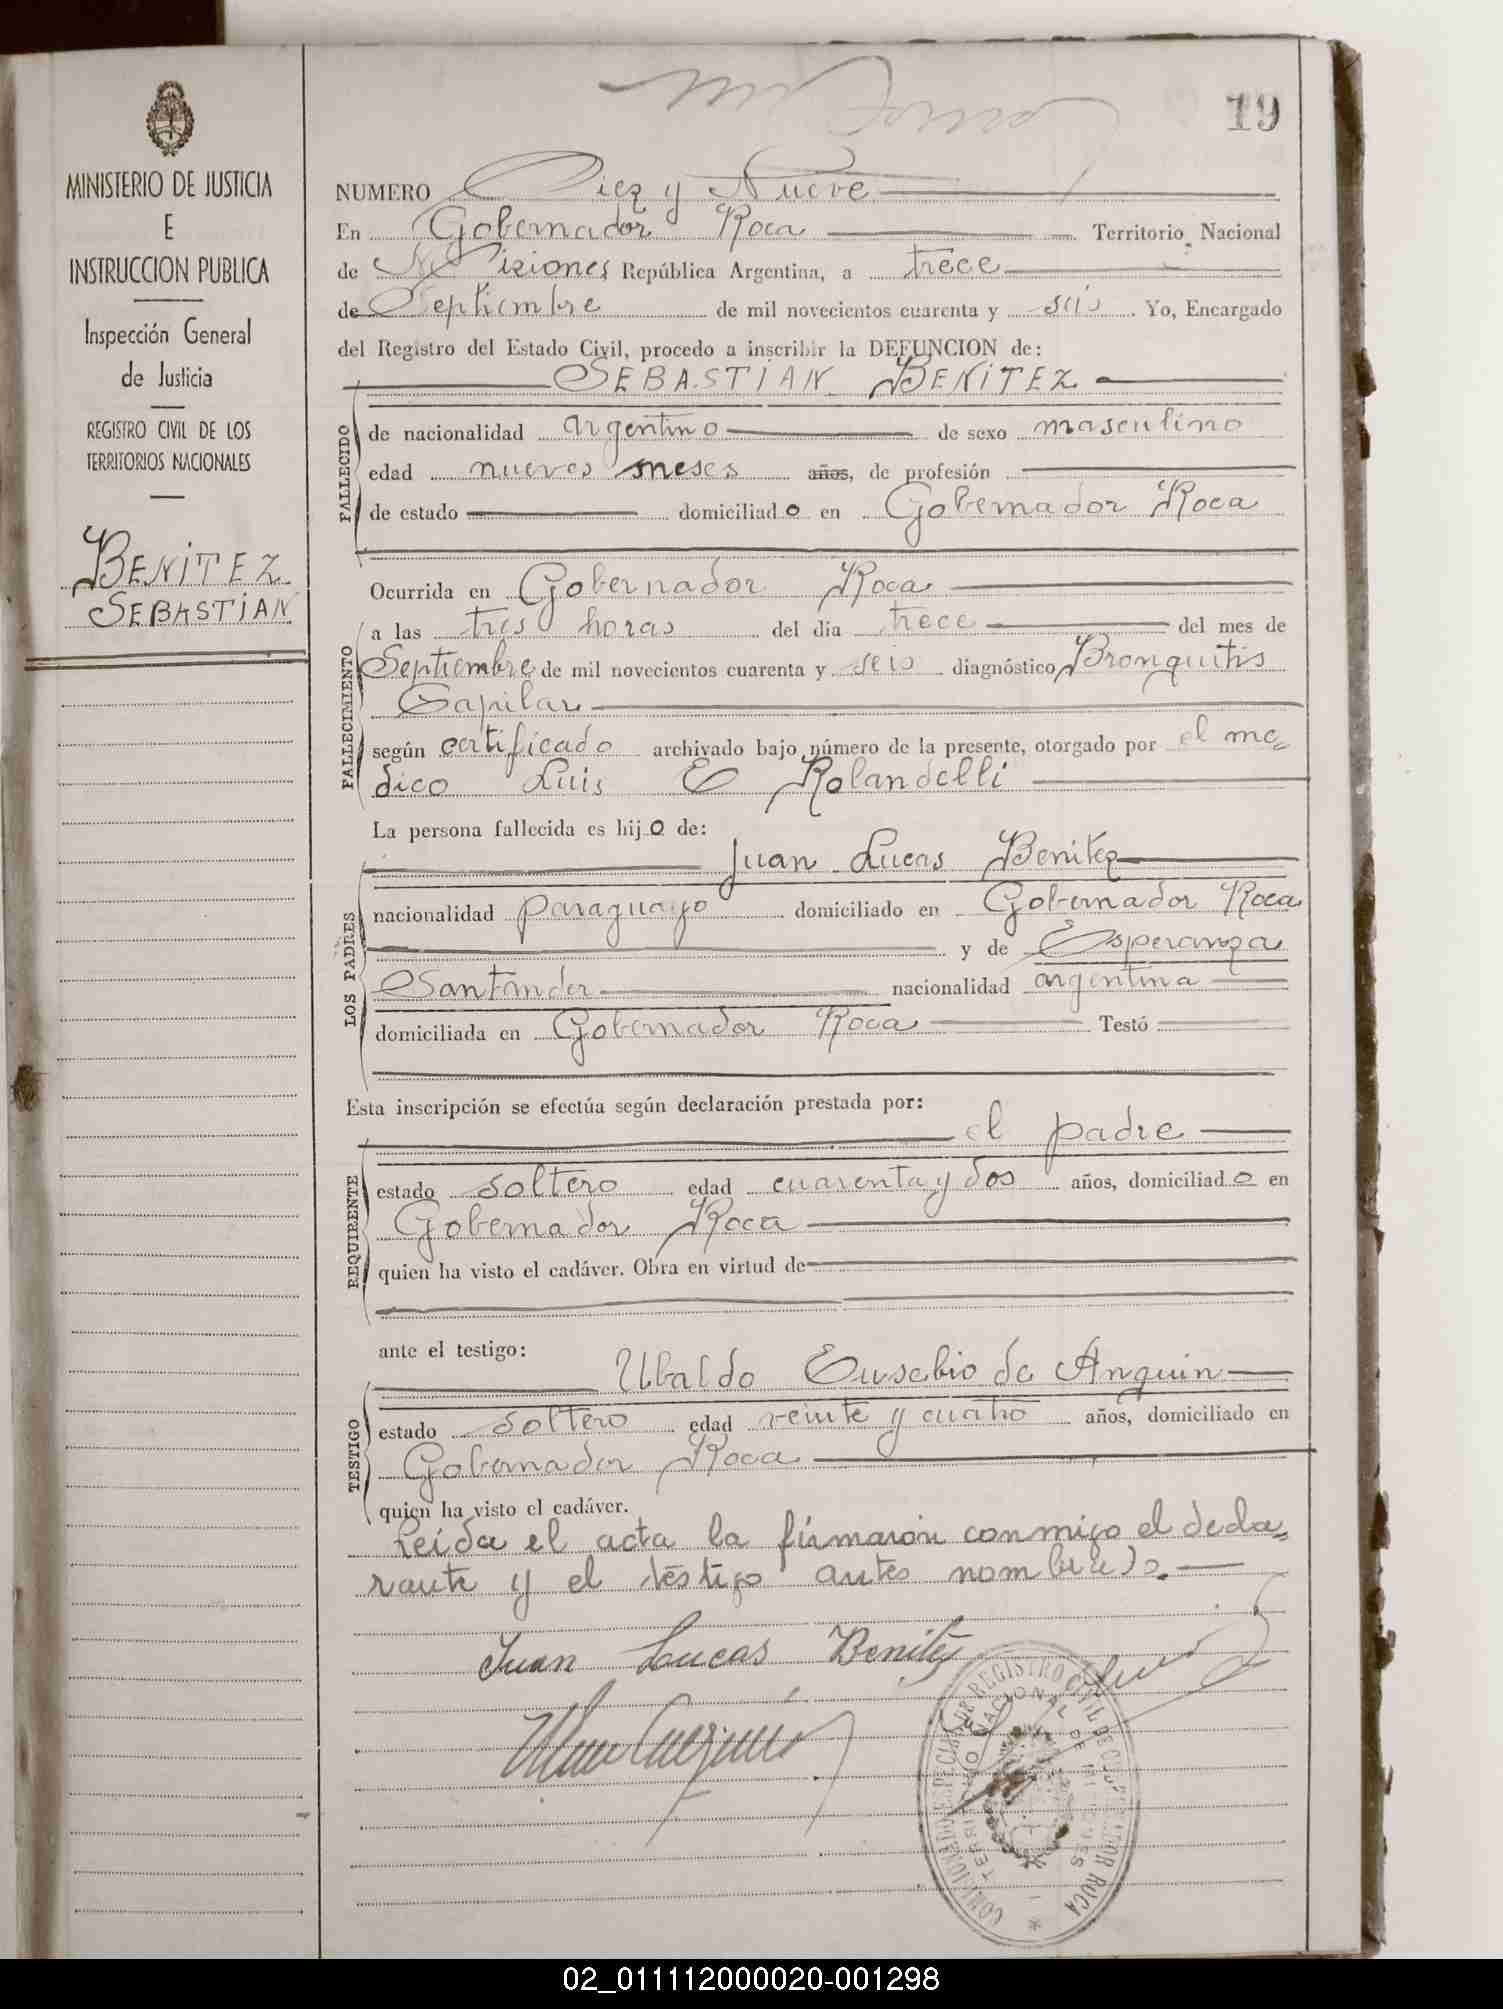 19
MINISTERIO DE JUSTICIA
E
INSTRUCCION PUBLICA
Inspección General
de Justicia
REGISTRO CIVIL DE LOS
TERRITORIOS NACIONALES
BENITEZ
SEBASTIAN
NUMERO Diez y Nueve
En Gobernador Roca Territorio Nacional
de Misiones República Argentina, a trece
de Septiembre de mil novecientos cuarenta y seis. Yo, Encargado
del Registro del Estado Civil, procedo a inscribir la DEFUNCION de:
SEBASTIAN BENITEZ
FALLECIDO
de nacionalidad argentino de sexo masculino
edad nueves meses años, de profesión
de estado domiciliado en Gobernador Roca
FALLECIMIENTO
Ocurrida en Gobernador Roca
a las tres horas del día trece del mes de
Septiembre de mil novecientos cuarenta y seis diagnóstico Bronquitis
Capilar
según certificado archivado bajo número de la presente, otorgado por el me=
dico Luis E Rolandelli
La persona fallecida es hijo de:
LOS PADRES
Juan Lucas Benitez
nacionalidad paraguayo domiciliado en Gobernador Roca
y de Esperanza
Santander nacionalidad argentina
domiciliada en Gobernador Roca Testó
Esta inscripción se efectúa según declaración prestada por:
REQUIRENTE
el padre
estado soltero edad cuarenta y dos años, domiciliado en
Gobernador Roca
quien ha visto el cadáver. Obra en virtud de
ante el testigo:
TESTIGO
Ubaldo Eusebio de Anquin
estado soltero edad veinte y cuatro años, domiciliado en
Gobernador Roca
quien ha visto el cadáver.
Leida el acta la firmaron conmigo el decla=
rante y el testigo antes nombrado.
Juan Lucas Benitez
REGISTRO CIVIL DE GOBERNADOR ROCA
TERRITORIO NACIONAL DE MISIONES
02_011112000020-001298